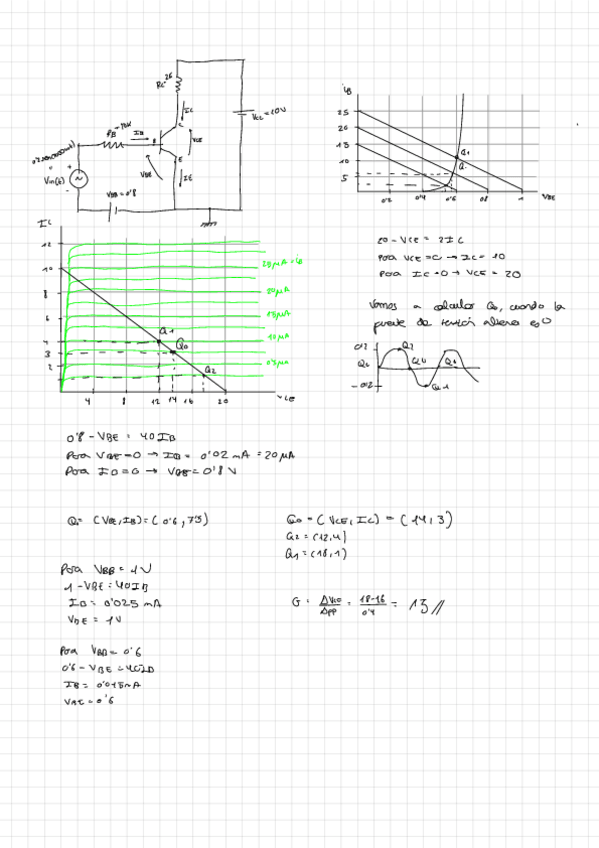 IC
VCE
VBE
IE
Vin(t)
VBB = 0'8
iB
25
20
15
10
5
Q1
0'2
0'4
0'6
0'8
1
VBE
IC
12
10
8
6
4
3
2
20μA
15μA
10μA
Q1
Q0
Q2
4
8
12
14
16
20
VCE
20 - VCE = 2IC
Para VCE = 0 → IC = 10
Para IC = 0 → VCE = 20
Vamos a calcular Q0, cuando la
fuente de tensión alterna es 0
0'2
Q0
-0'2
Q2
Q0
Q1
0'8 - VBE = 40IB
Para VBE = 0 → IB = 0'02 mA = 20μA
Para IB = 0 → VBE = 0'8 V
Q = (VBE, IB) = (0'6, 7'5)
Q0 = (VCE, IC) = (14, 3)
Q2 = (12, 4)
Q1 = (18, 1)
Para VBB = 1V
1 - VBE = 40IB
IB = 0'025 mA
VBE = 1V
G = = = 13 //
18-16
0'4
Para VBB = 0'6
0'6 - VBE = 40IB
IB = 0'015mA
VBE = 0'6